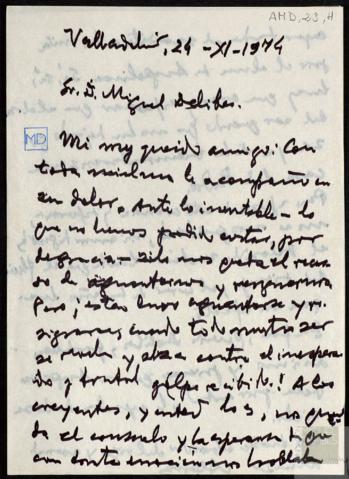 AMD, 23, 4
Valladolid, 24-XI-1974
Sr. D. Miguel Delibes.
MD
Mi muy querido amigo: Con
toda mi alma le acompaño en
su dolor. Ante lo inevitable - lo
que no hemos podido evitar, por
desgracia - sólo nos queda el recur
so de aguantarnos y resignarnos
Pero, ¡es tan duro aguantarse y re
signarse, cuando todo nuestro ser
se revela y alza contra el inespera
do y brutal golpe recibido! A los
creyentes, y usted lo es, nos queda
el consuelo y la esperanza de que
con tanta emoción nos habla